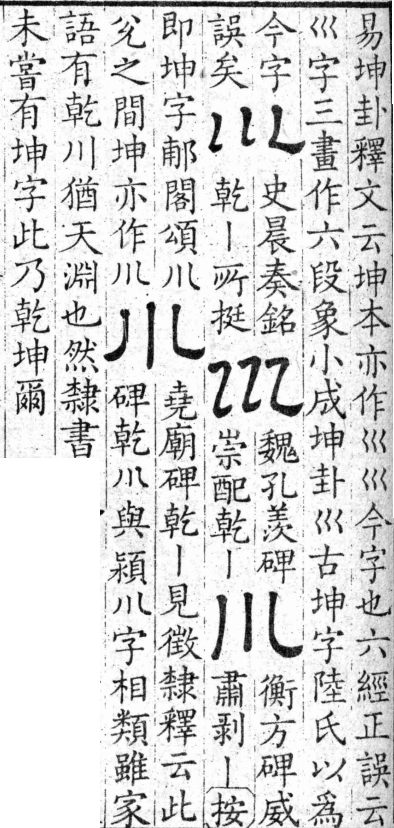 易坤卦釋文云坤本亦作巛巛今字也六經正誤云
巛字三畫作六段象小成坤卦巛古坤字陸氏以爲
今字
誤矣
川
史晨奏銘
乾丨所挺
巛
魏孔羨碑
崇配乾丨
川
衡方碑威
肅剥丨按
即坤字郙閣頌川
兊之間坤亦作川
川
堯廟碑乾丨見徵隸釋云此
碑乾川與潁川字相類雖家
語有乾川猶天淵也然隸書
未嘗有坤字此乃乾坤爾